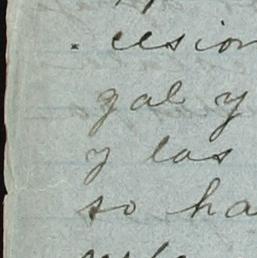 . cesion
gal y
y las
so ha